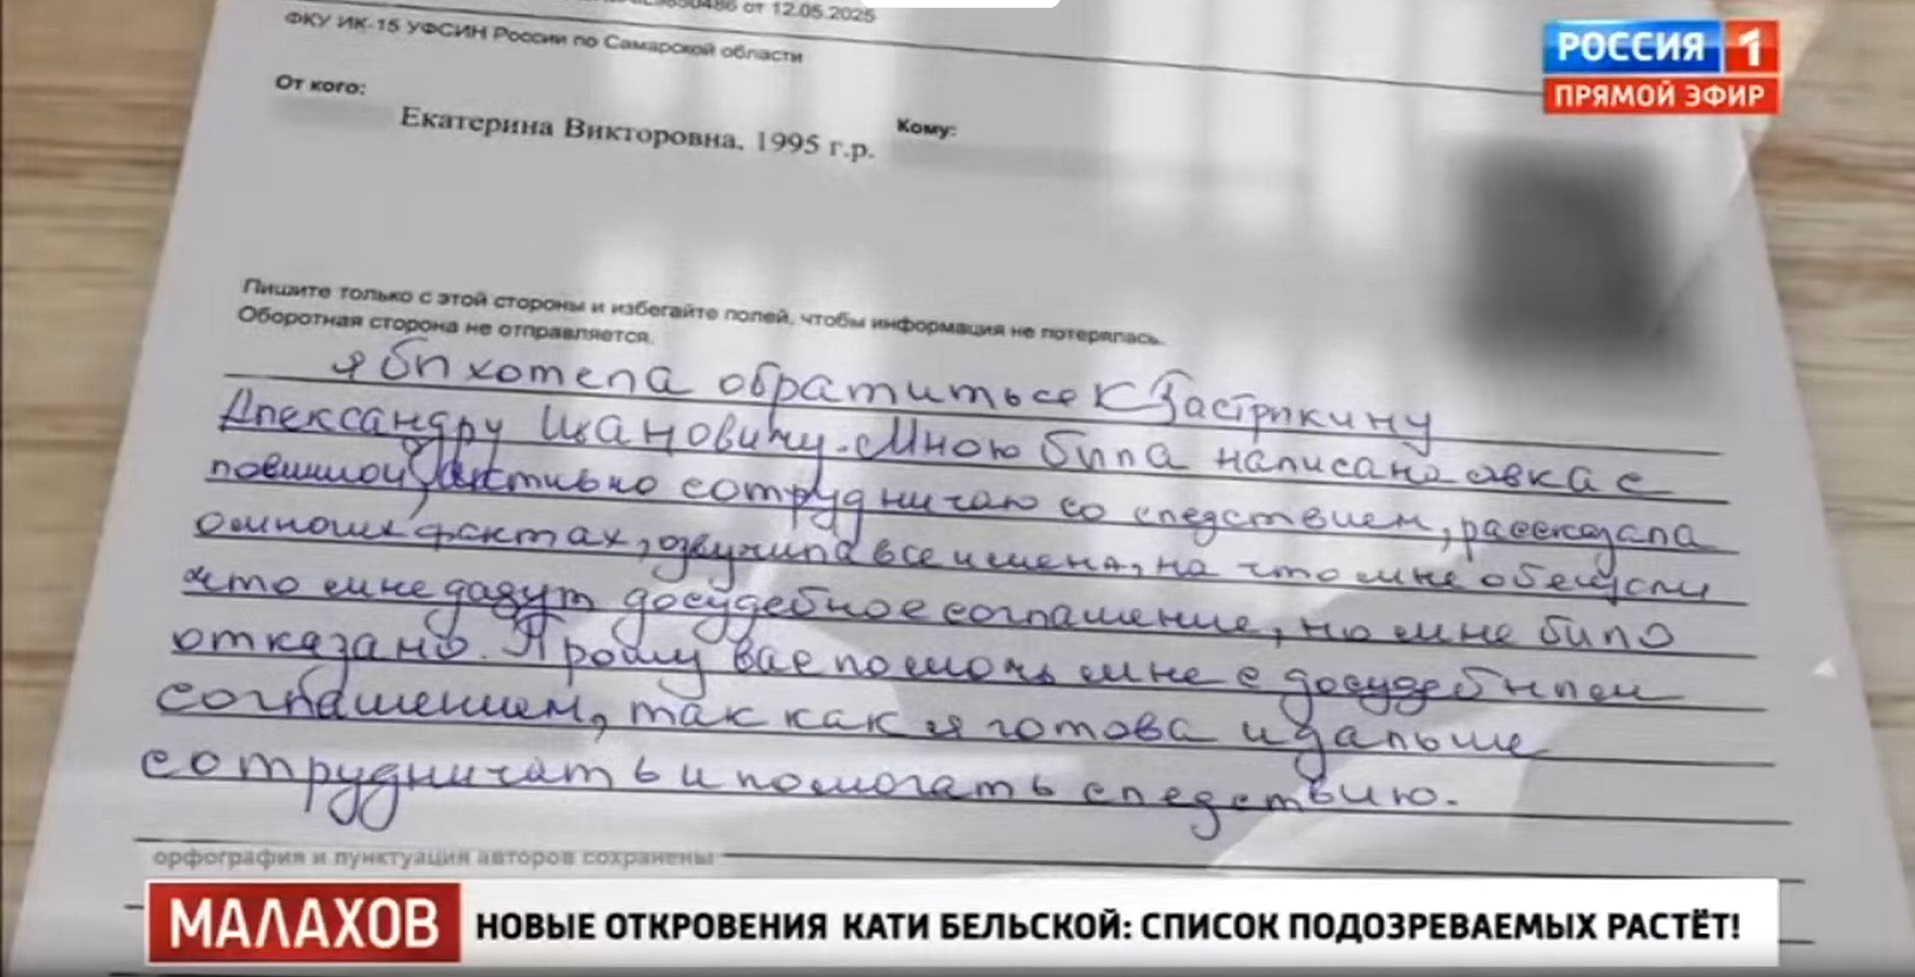 от 12.05.2025
ФКУ ИК-15 УФСИН России по Самарской области
РОССИЯ 1
ПРЯМОЙ ЭФИР
От кого:
Екатерина Викторовна, 1995 г.р.
Кому:
Пишите только с этой стороны и избегайте полей, чтобы информация не потерялась.
Оборотная сторона не отправляется.
я бы хотела обратиться к Бастрыкину
Александру Ивановичу. Мною была написана явка с
повинной, активно сотрудничаю со следствием, рассказала
о многих фактах, озвучила все имена, на что мне обещали
что мне дадут досудебное соглашение, но мне было
отказано. Прошу вас помочь мне с досудебным
соглашением, так как я готова и дальше
сотрудничать и помогать следствию.
орфография и пунктуация авторов сохранены
МАЛАХОВ НОВЫЕ ОТКРОВЕНИЯ КАТИ БЕЛЬСКОЙ: СПИСОК ПОДОЗРЕВАЕМЫХ РАСТЁТ!